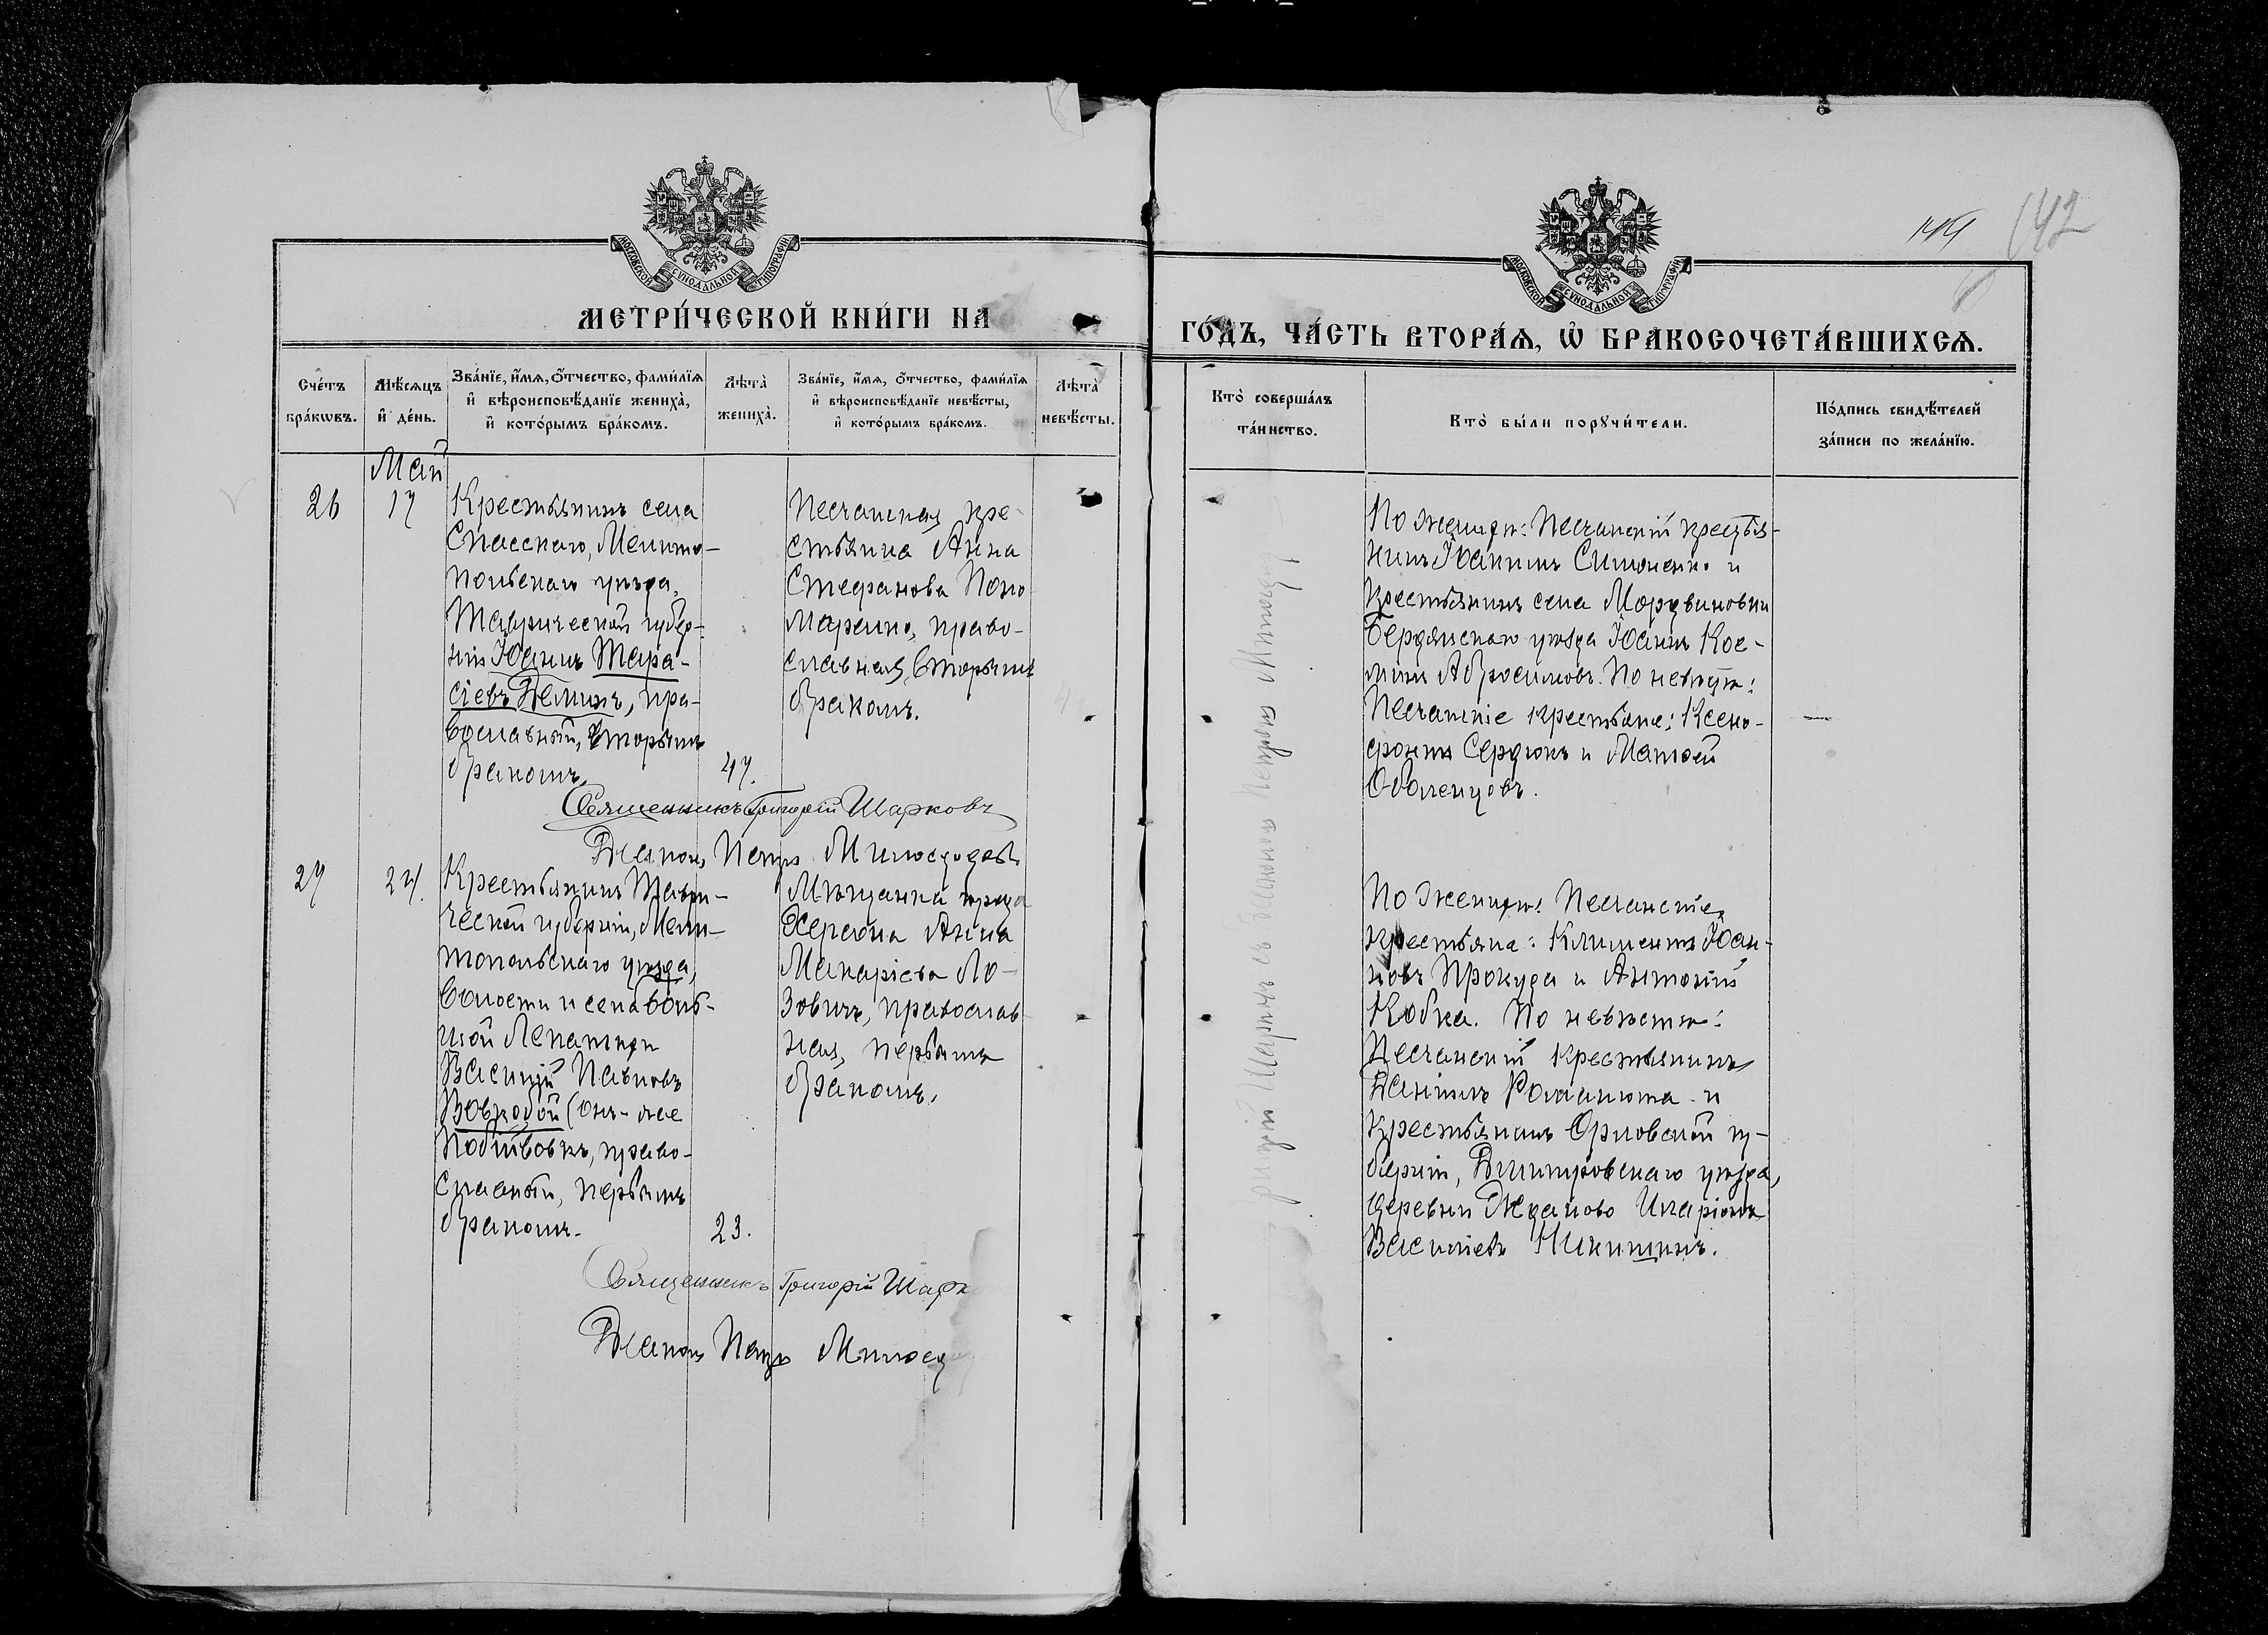 149 142
МОСКОВСКОЙ СѴНОДАЛЬНОЙ ТИПОГРАФІИ
МОСКОВСКОЙ СѴНОДАЛЬНОЙ ТИПОГРАФІИ
МЕТРИ́ЧЕСКОЙ КНИ́ГИ НА
ГО́ДЪ, ЧА́СТЬ ВТОРА́Ѧ, Ѡ҆ БРАКОСОЧЕТА́ВШИХСѦ.
Сче́тъ бра́кѡвъ.
Мѣ́сѧцъ и҆ де́нь.
Зва́нїе, и҆́мѧ, ѻ҆́тчество, фами́лїѧ
и҆ вѣроисповѣ́данїе жениха̀,
и҆ кото́рымъ бра́комъ.
Лѣта̀ жениха̀.
Зва́нїе, и҆́мѧ, ѻ҆́тчество, фами́лїѧ
и҆ вѣроисповѣ́данїе невѣ́сты,
и҆ кото́рымъ бра́комъ.
Лѣта̀ невѣ́сты.
Кто̀ соверша́лъ
та́инство.
Кто̀ бы́ли порꙋчи́тели.
По́дпись свидѣ́телей
за́писи по жела́нїю.
Май
26
17
Крестьянинъ села
Спасскаго, Мелито-
польскаго уѣзда,
Таврической губер-
ніи Іоаннъ Тара-
сіевъ Деминъ, пра-
вославный, вторымъ
бракомъ.
47.
Песчанская кре-
стьянка Анна
Стефанова Поно
маренко, право-
славная, вторымъ
бракомъ.
По женихѣ: Песчанскій крестья-
нинъ Іоакимъ Симоненко и
крестьянинъ села Мордвиновки
Бердянскаго уѣзда Іоаннъ Кос-
минъ Абросимовъ. По невѣстѣ:
Песчанскіе крестьяне: Ксено-
фонтъ Сердюкъ и Матѳей
Оболенцевъ.
Священникъ Григорій Шарковъ
Діаконъ Петръ Милосердовъ
27
24.
Крестьянинъ Таври-
ческой губерніи, Мели-
топольскаго уѣзда,
волости и села Боль-
шой Лепатихи
Василій Павловъ
Вовкобой (онъ-же
Побійвовкъ, право-
славный, первымъ
бракомъ.
23.
Мѣщанка города
Херсона Анна
Макаріева Ло-
зовичъ, православ
ная, первымъ
бракомъ.
По женихѣ: Песчанскіе
крестьяне: Климентъ Іоан-
новъ Прокуда и Антоній
Кобка. По невѣстѣ:
Песчанскій крестьянинъ
Даніилъ Романюта и
крестьянинъ Орловской гу-
берніи, Дмитровскаго уѣзда,
деревни Жданово Иларіонъ
Василіевъ Никитинъ.
Священникъ Григорій Шарк
Діаконъ Петръ Милосер